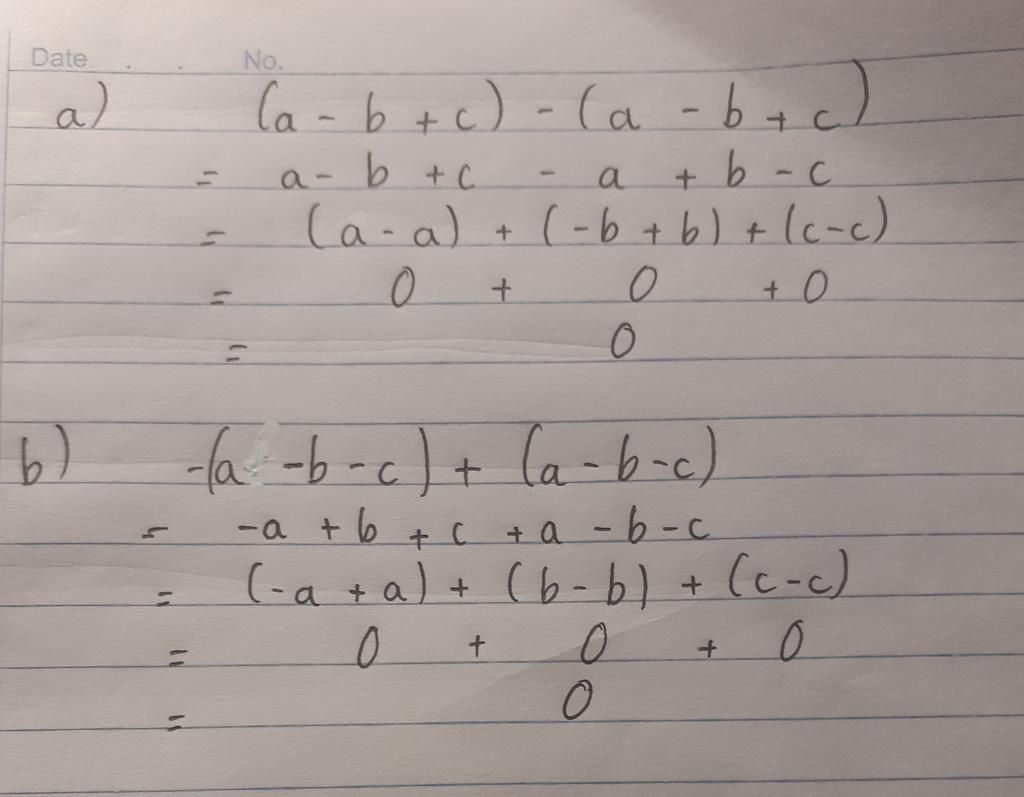 Date . . No.
a) (a - b + c) - (a - b + c)
= a - b + c - a + b - c
= (a - a) + (-b + b) + (c - c)
= 0 + 0 + 0
= 0
b) -(a - b - c) + (a - b - c)
= -a + b + c + a - b - c
= (-a + a) + (b - b) + (c - c)
= 0 + 0 + 0
= 0